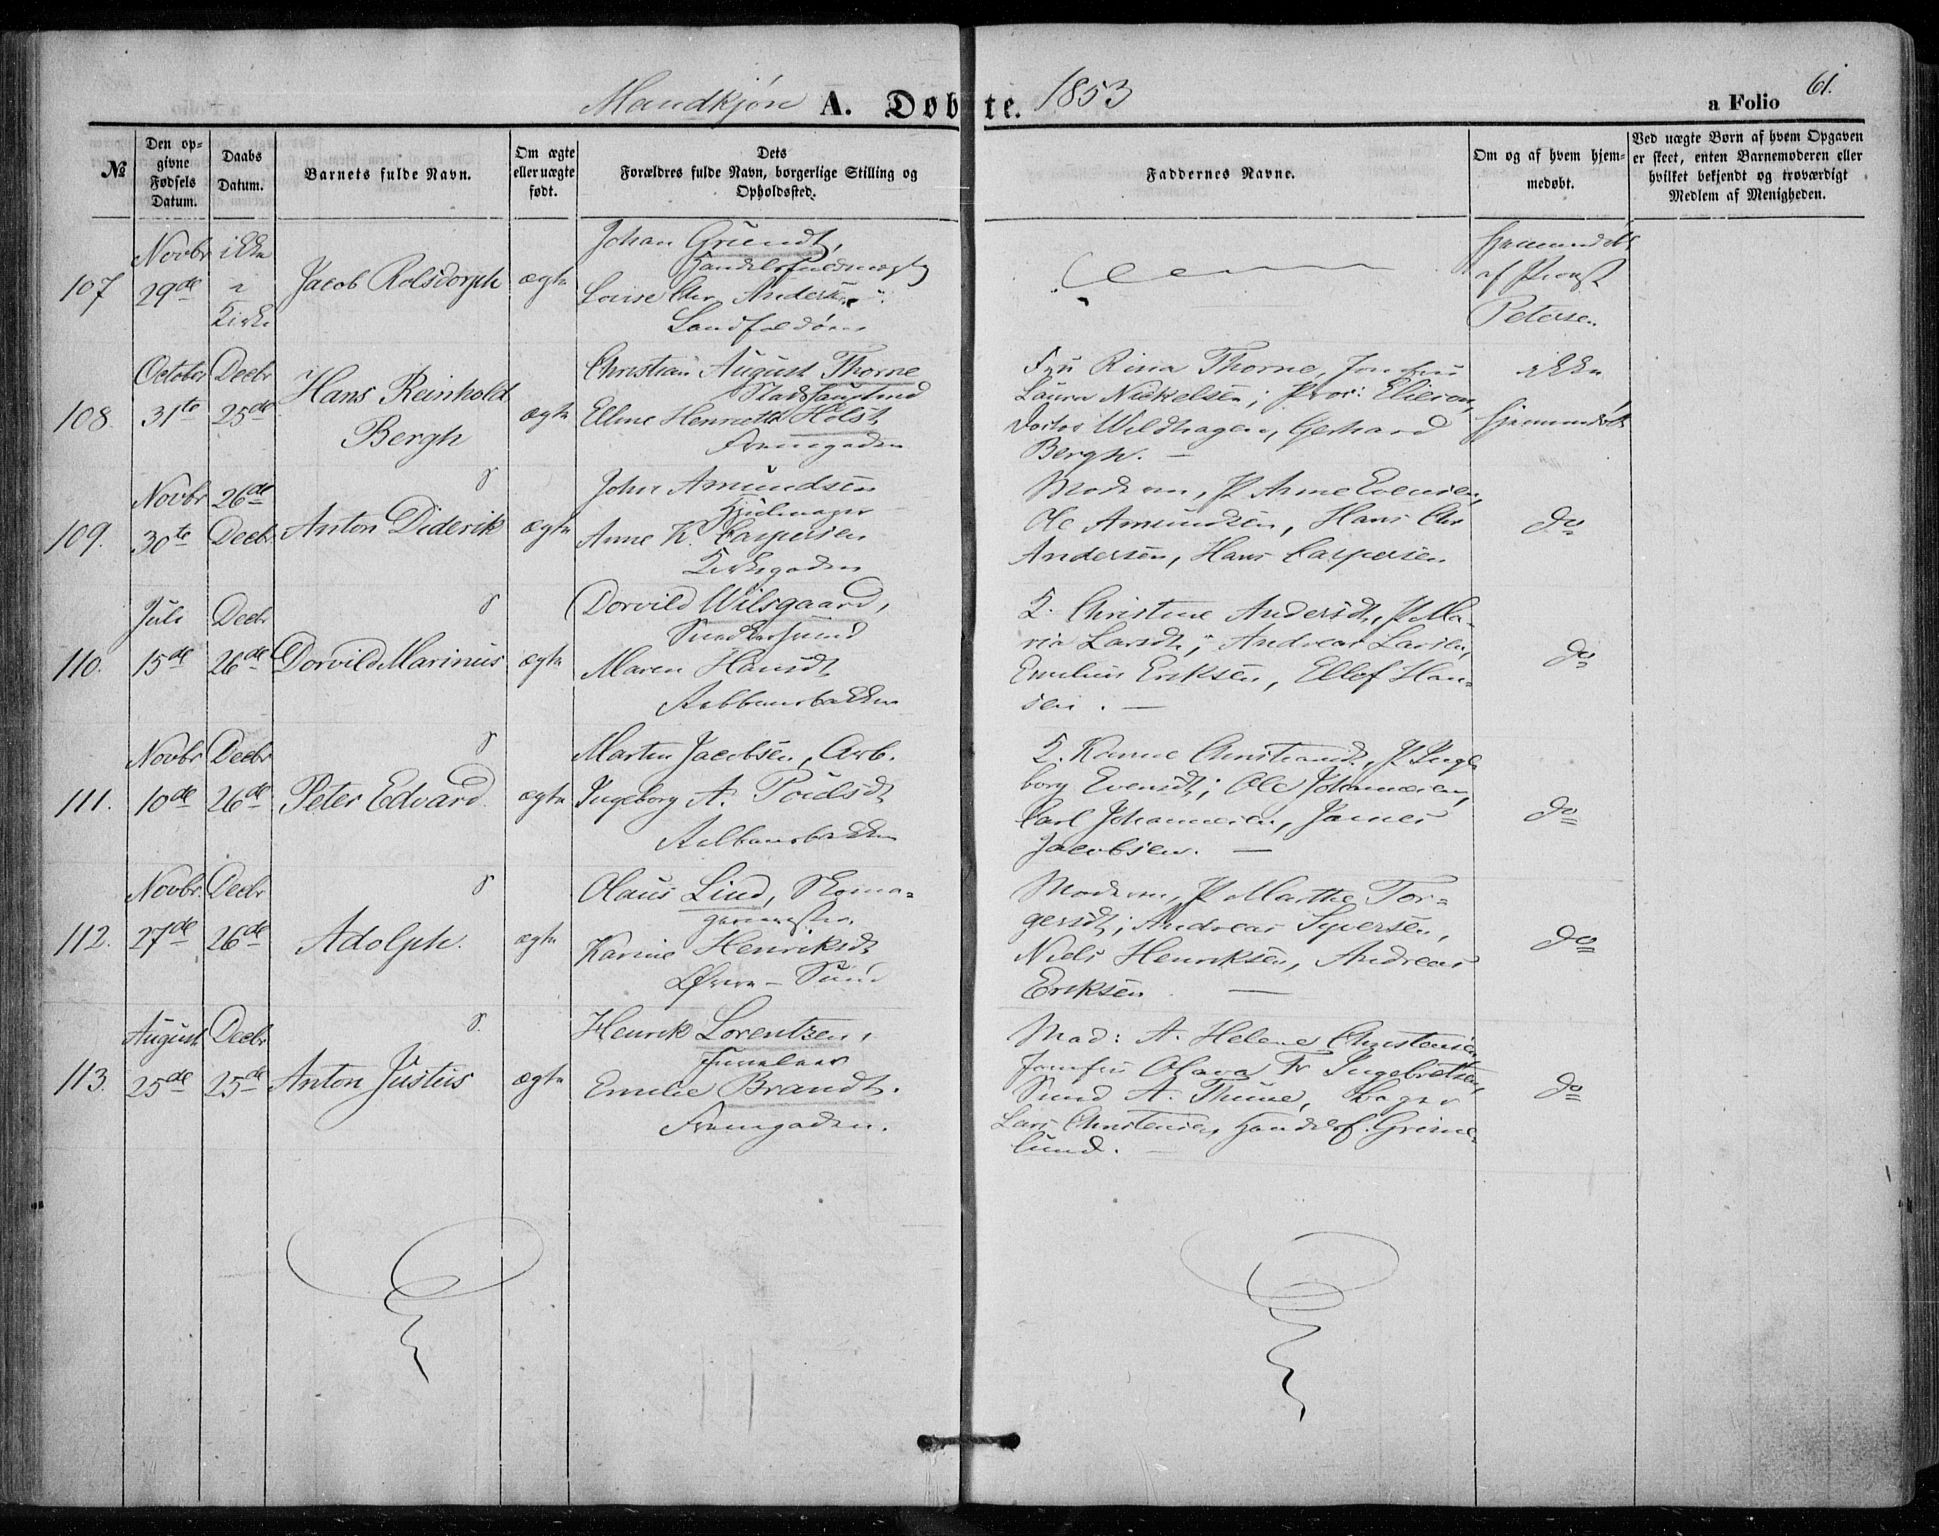 Mandkjøn A. Døbte. 1853
a Folio 61.
№
Den opgivne Fødsels Datum.
Daabs Datum.
Barnets fulde Navn.
Om ægte eller uægte født.
Dets Forældres fulde Navn, borgerlige Stilling og Opholdssted.
Faddernes Navne.
Om og af hvem hjemmedøbt.
Ved uægte Børn af hvem Opgaven er skeet, enten Barnemoderen eller hvilket bekjendt og troværdigt Medlem af Menigheden.
107
Novbr
29de
ikke
i
Kirke
Jacob Rolsdorph
ægte
Johan Grundt,
Handelsfuldmægt
Louise Chr Anders
hjemmedøbt
af Provst
Petersen
108.
October
31te
Decbr
25de
Hans Reinhold
Bergh
ægte
Christian August Thorne
Stadshauptmd
Elline Henriette Holst
Fremgaden
Fru Rina Thorne, Jomfru
Laura Nickelsen; Pror: Elieson,
Doctor Wildhagen, Gerhard
Bergh. —
ikke
hjemmedøbt
109.
Novbr
30te
26de
Decbr
Anton Diderik
ægte
John Amundsen
Hjulmager
Anne K. Caspersen
Kirkegaden
Moderen, P Anne Evensen,
Ole Amundsen, Hans Chr
Andersen, Hans Caspersen
do
110.
Juli
15de
Decbr
26de
Dorvild Marinus
ægte
Dorvild Wilsgaard,
Snedkersvend
Maren Hansdt
K. Christine Andersdt, P Ma-
ria Larsdt; Andreas Larsen,
Emelius Eriksen, Ellef Han-
sen. —
do
111.
Novbr
10de
Decbr
26de
Peter Edvard
ægte
Martin Jacobsen, Arb.
Ingeborg A. Poulsdt
K. Karine Christiansdt, P Inge-
borg Evensdt; Ole Johannesen,
Carl Johannesen, James
Jacobsen. —
do
112.
Novbr.
27de
Decbr
26de
Adolph.
ægte
Olaus Lind, Skoma-
germester.
Karine Henriksdt
Øvre-Sund
Moderen, P Marthe Tor-
gersdt; Andreas Syversen,
Niels Henriksen, Andreas
Eriksen —
do
113.
August
25de
Decbr
25de
Anton Justus
ægte
Henrik Lorentzen,
Juveleer
Emelie Brandt.
Fremgaden.
Mad: A. Helene Christensen
Jomfru Olava Fr Ingebretsen,
Svend A. Thune, Bager
Lars Christensen, Handelsf. Grime-
lund. —
do